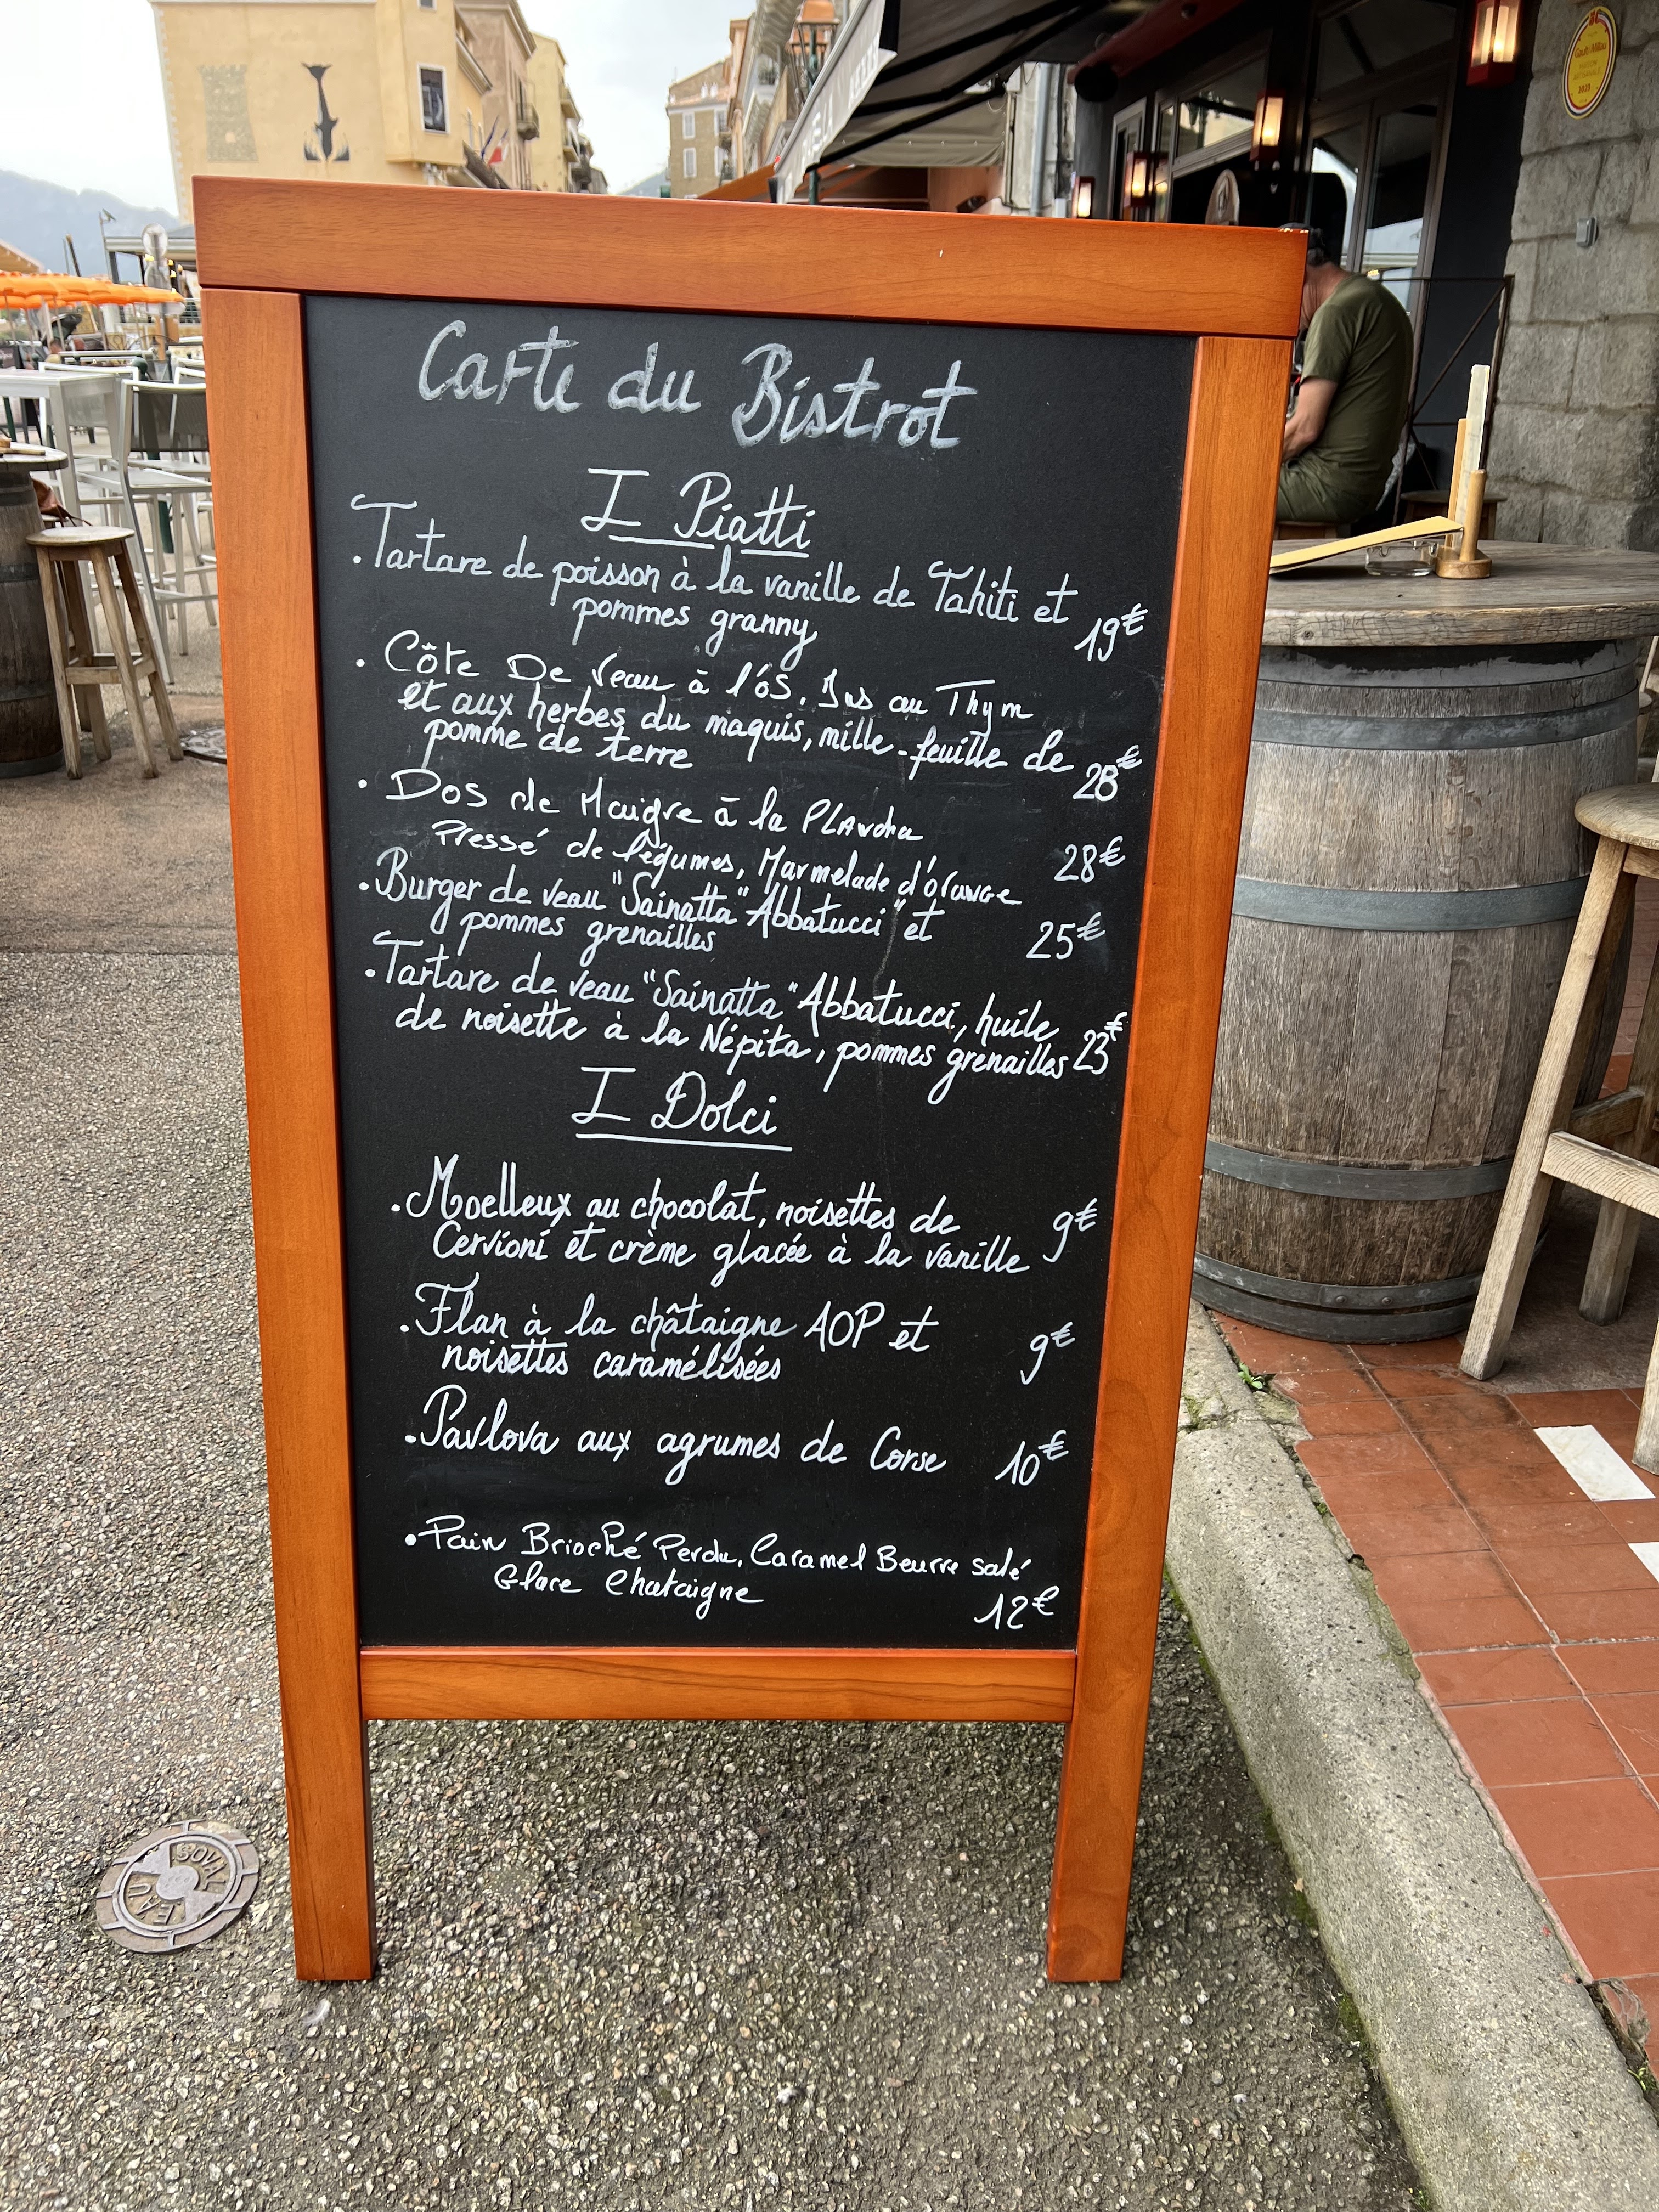 Carte du Bistrot
I Piatti
. Tartare de poisson à la vanille de Tahiti et
pommes granny 19€
. Côte De veau à l'os. Jus au Thym
et aux herbes du maquis, mille-feuille de
pomme de terre 28€
. Dos de Maigre à la PLAncha
Pressé de légumes, Marmelade d'orange 28€
. Burger de veau "Sainatta" Abbatucci" et
pommes grenailles 25€
. Tartare de veau "Sainatta" Abbatucci, huile
de noisette à la Népita, pommes grenailles 23€
I Dolci
. Moelleux au chocolat, noisettes de
Cervioni et crème glacée à la vanille 9€
. Flan à la châtaigne AOP et
noisettes caramélisées 9€
. Pavlova aux agrumes de Corse 10€
. Pain Brioché Perdu, Caramel Beurre salé
Glace Chataigne
12€
Gault&Millau
2023
EAU